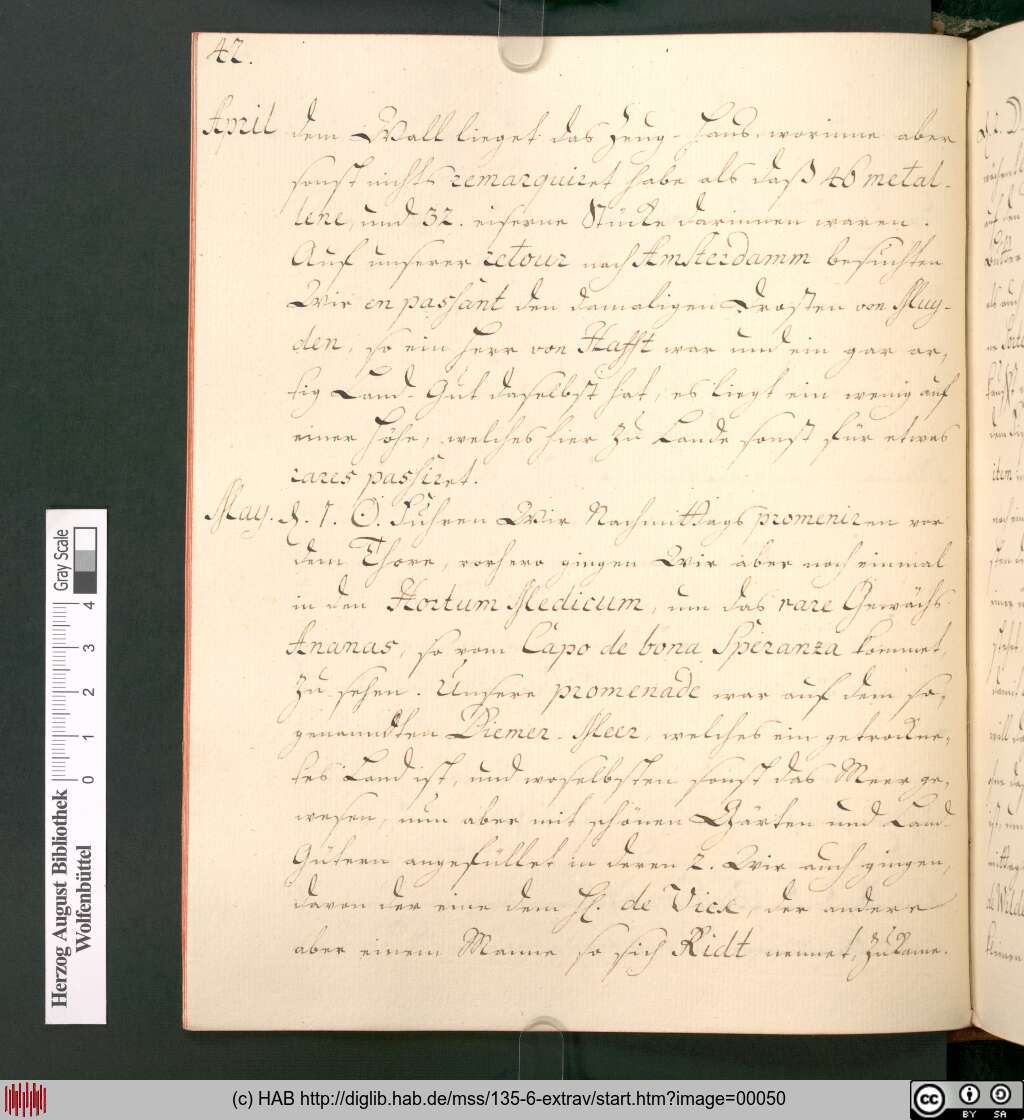 42.
April dem Wall lieget das Zeug-Haus, worinne aber
sonst nichts remarquiret habe als daß 46 metal-
lene, und 32. eiserne Stücke darinnen waren.
Auf unserer retour nach Amsterdamm besuchten
Wir en passant den damaligen Drosten von Muy-
den, so ein Herr von Hafft war und ein gar ar-
tig Land-Gut daselbst hat, es liegt ein wenig auf
einer Höhe, welches hier zu Lande sonst für etwas
rares passiret.
May. d. 1. ☉. Fuhren Wir Nachmittags promeniren vor
dem Thore, vorhero gingen Wir aber noch einmal
in den Hortum Medicum, um das rare Gewächs
Ananas, so vom Capo de bona Speranza kommet,
zu sehen. Unsere promenade war auf dem so-
genanndten Diemer-Meer, welches ein getrockne-
tes Land ist, und woselbsten sonst das Meer ge-
wesen, nun aber mit schönen Gärten und Land-
Gütern angefüllet in deren 2. Wir auch gingen,
davon der eine dem H. de Vick, der andere
aber einem Manne so sich Ridt nennet, zukame.
Herzog August Bibliothek
Wolfenbüttel
Gray Scale
0 1 2 3 4
(c) HAB http://diglib.hab.de/mss/135-6-extrav/start.htm?image=00050
cc BY SA